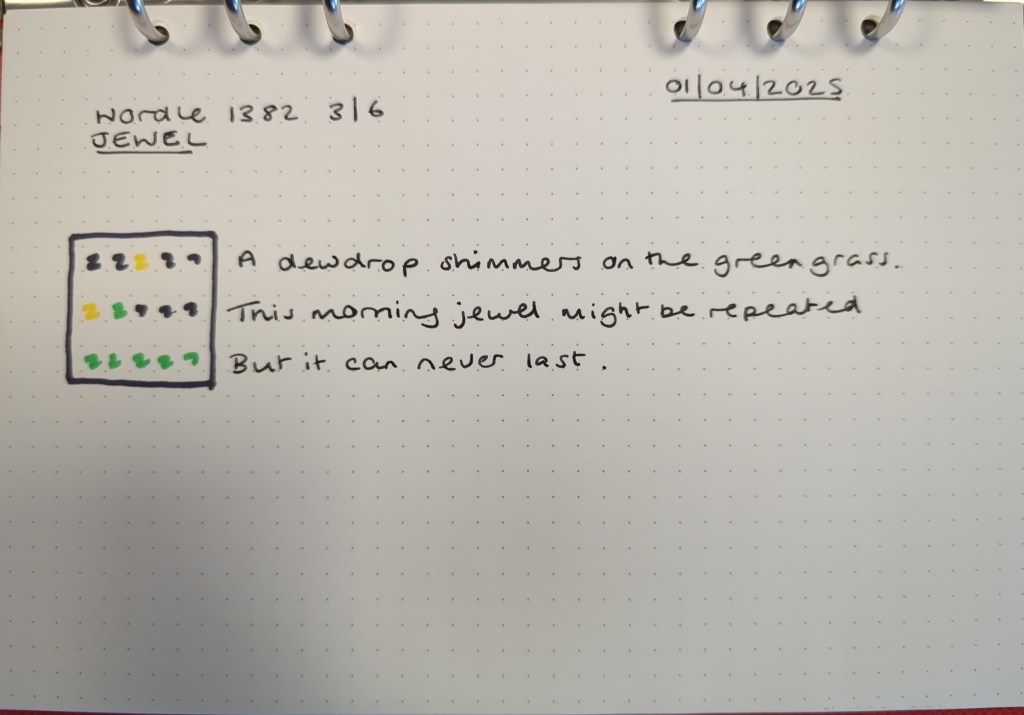 01/04/2025
Wordle 1382 3/6
JEWEL
A dewdrop shimmers on the green grass.
This morning jewel might be repeated
But it can never last.